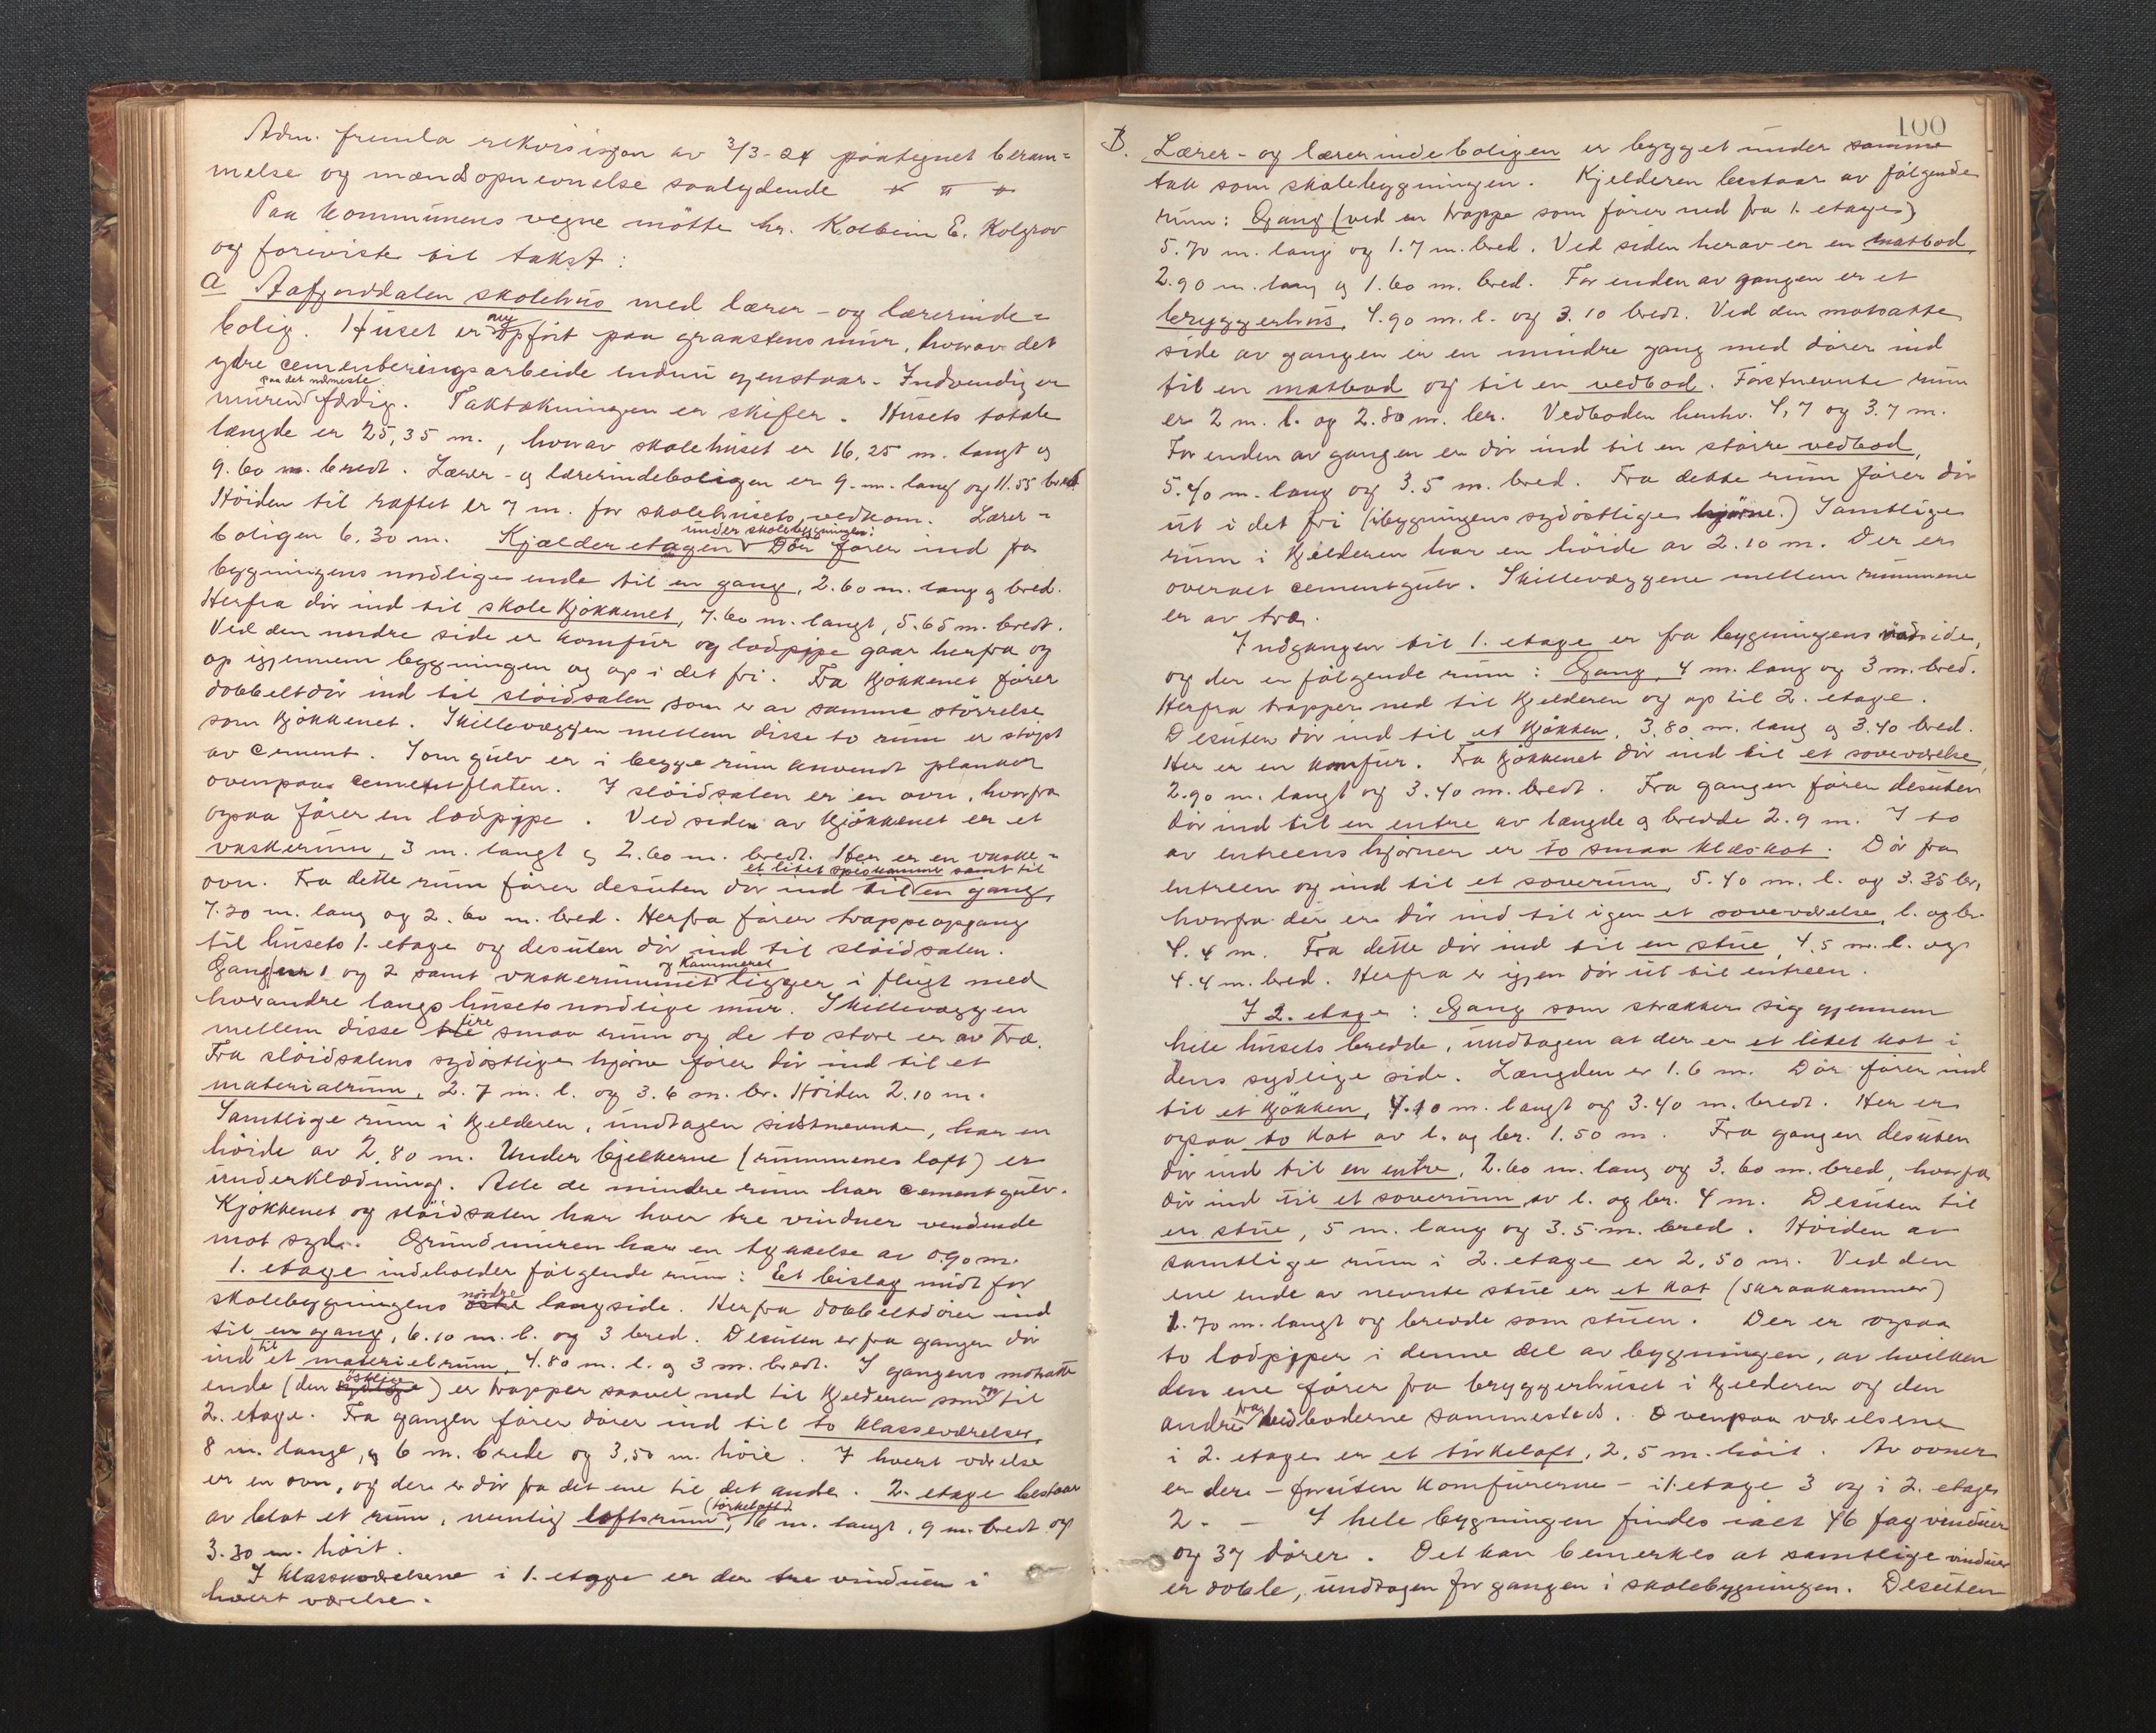 Adm. fremla rekvisisjon av 3/3-24 paategnet beram=
melse og mændsopnevnelse saalydende
Paa kommunens vegne mötte hr. Kolbein E. Kolgrov
og foreviste til takst:
a Aafjorddalen skolehus med lærer- og lærerinde=
bolig. Huset er ny opfört paa graastens mur, hvorav det
ydre cementeringsarbeide endnu gjenstaar. Indvendig er
muren paa det nærmeste færdig. Taktækningen er skifer. Husets totale
længde er 25,35 m., hvorav skolehuset er 16,25 m. langt og
9.60 m. bredt. Lærer- og lærerindeboligen er 9. m. lang og 11.55 bred.
Höiden til raftet er 7 m. for skolehusets vedkom. Lærer=
boligen 6.30 m. Kjælderetagen under skolebygningen: Dör förer ind fra
bygningens nordlige ende til en gang, 2.60 m. lang og bred.
Herfra dör ind til skolekjökkenet, 7.60 m. langt, 5.65 m. bredt.
Ved den nordre side er komfur og lodpipe gaar herfra og
op igjennem bygningen og op i det fri. Fra kjökkenet förer
dobbeltdör ind til slöidsalen som er av samme störrelse
som kjökkenet. Skillevæggen mellem disse to rum er stöpt
av cement. Som gulv er i begge rum anvendt planker
ovenpaa cementflaten. I slöidsalen er en ovn, hvorfra
ogsaa förer en lodpipe. Ved siden av kjökkenet er et
vaskerum, 3 m. langt og 2.60 m. bredt. Her er en vaske=
ovn. Fra dette rum förer desuten dör ind til et litet spiskammer samt til en gang,
7.30 m. lang og 2.60 m. bred. Herfra förer trappeopgang
til husets 1. etage og desuten dör ind til slöidsalen.
Gangene 1 og 2 samt vaskerummet og kammeret ligger i flugt med
hverandre langs husets nordlige mur. Skillevæggen
mellem disse tre fire smaa rum og de to store er av træ.
Fra slöidsalens sydöstlige hjörne förer dör ind til et
materialrum, 2.7 m. l. og 3.6 m. br. Höiden 2.10 m.
Samtlige rum i kjelderen, undtagen sidstnevnte, har en
höide av 2,80 m. Under bjelkerne (rummenes loft) er
underklædning. Alle de mindre rum har cementgulv.
Kjökkenet og slöidsalen har hver tre vinduer vendende
mot syd. Grundmuren har en tykkelse av 0,90 m.
1. etage indeholder fölgende rum: Et bislag midt for
skolebygningens östre nordre langside. Herfra dobbeltdörer ind
til en gang, 6.10 m. l. og 3 bred. Desuten er fra gangen dör
ind til et materielrum, 4.80 m. l. og 3 m. bredt. I gangens motsatte
ende (den sydlige östlige) er trapper saavel ned til kjelderen som op til
2. etage. Fra gangen förer dörer ind til to klasseværelser,
8 m. lange, og 6 m. brede og 3,50 m. höie. I hvert værelse
er en ovn, og der er dör fra det ene til det andre. 2. etage bestaar
av blot et rum, nemlig loftsrum (törkeloft), 16 m. langt, 9 m. bredt og
3.30 m. höit.
I klasseværelsene i 1. etage er der tre vinduer i
hvert værelse.
100
B. Lærer- og lærerindeboligen er bygget under samme
tak som skolebygningen. Kjelderen bestaar av fölgende
rum: Gang (ved en trappe som förer ned fra 1. etage)
5.70 m. lang og 1.7 m. bred. Ved siden herav er en matbod
2.90 m. lang og 1.60 m. bred. For enden av gangen er et
bryggerhus, 4.90 m. l. og 3.10 bredt. Ved den motsatte
side av gangen er en mindre gang med dörer ind
til en matbod og til en vedbod. Förstnevnte rum
er 2 m. l. og 2.80 m. br. Vedboden henhv. 4,7 og 3.7 m.
For enden av gangen er dör ind til en större vedbod,
5.40 m. lang og 3.5 m. bred. Fra dette rum förer dör
ut i det fri (i bygningens sydöstlige hjörne.) Samtlige
rum i kjelderen har en höide av 2.10 m. Der er
overalt cementgulv. Skillevæggene mellem rummene
er av træ.
Indgangen til 1. etage er fra bygningens nordside,
og der er fölgende rum: Gang, 4 m. lang og 3 m. bred.
Herfra trapper ned til kjelderen og op til 2. etage.
Desuten dör ind til et kjökken, 3.80 m. lang og 3.40 bred.
Her er en komfur. Fra kjökkenet dör ind til et soveværelse,
2.90 m. langt og 3.40 m. bredt. Fra gangen förer desuten
dör ind til en entre av længde og bredde 2.9 m. I to
av entreens hjörner er to smaa klæskot. Dör fra
entreen og ind til et soverum, 5.40 m. l. og 3.35 br,
hvorfra der er dör ind til igjen et soveværelse, l. og br.
4.4 m. Fra dette dör ind til en stue, 4,5 m. l. og
4.4 m. bred. Herfra er igjen dör ut til entreen.
I 2. etage: Gang som strækker sig gjennem
hele husets bredde, undtagen at der er et litet kot i
dens sydlige side. Længden er 1.6 m. Dör förer ind
til et kjökken, 4.10 m. langt og 3.40 m. bredt. Her er
ogsaa to kot av l. og br. 1.50 m. Fra gangen desuten
dör ind til en entre, 2.60 m. lang og 3.60 m. bred, hvorfra
dör ind til et soverum av l. og br. 4 m. Desuten til
en stue, 5 m. lang og 3.5 m. bred. Höiden av
samtlige rum i 2. etage er 2,50 m. Ved den
ene ende av nevnte stue er et kot (skraakammer)
1.70 m. langt og bredde som stuen. Der er ogsaa
to lodpiper i denne del av bygningen, av hvilken
den ene förer fra bryggerhuset i kjelderen og den
andre fra vedboderne sammesteds. Ovenpaa værelsene
i 2. etage er et törkeloft, 2,5 m. höit. Av ovner
er der - foruten komfurerne - i 1. etage 3 og i 2. etage
2. - I hele bygningen findes ialt 46 fag vinduer
og 37 dörer. Det kan bemerkes at samtlige vinduer
er doble, undtagen for gangen i skolebygningen. Desuten